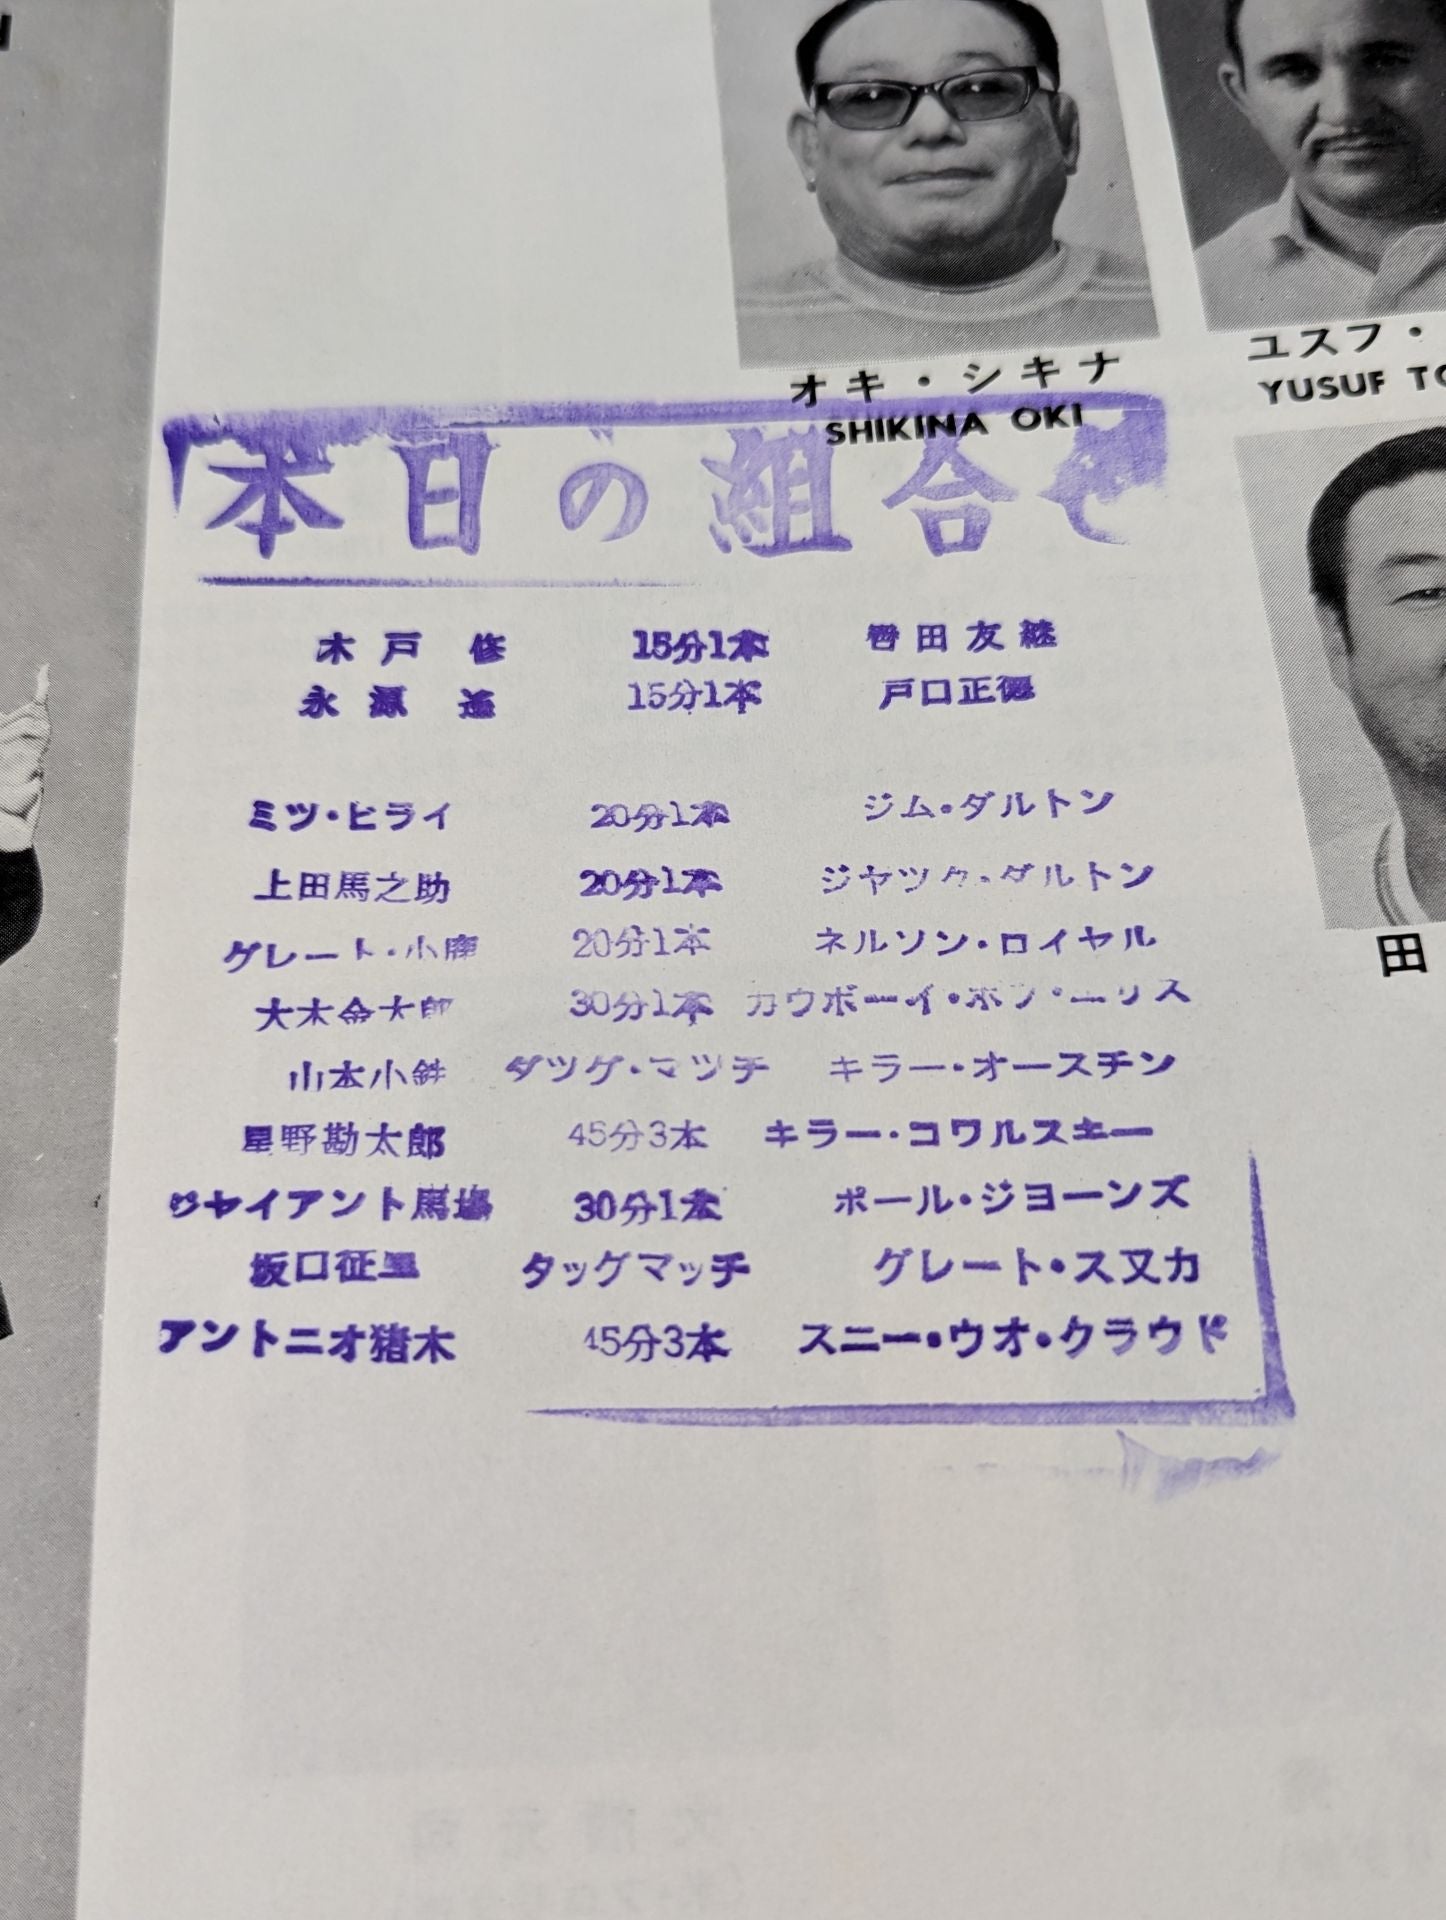 オキ・シキナ
SHIKINA OKI
ユスフ・
YUSUF
本日の組合せ
木戸 修 15分1本 轡田友継
永源 遥 15分1本 戸口正徳
ミツ・ヒライ 20分1本 ジム・ダルトン
上田馬之助 20分1本 ジヤツク・ダルトン
グレート・小鹿 20分1本 ネルソン・ロイヤル
大木金太郎 30分1本 カウボーイ・ボブ・エリス
山本小鉄 タツグ・マツチ キラー・オースチン
星野勘太郎 45分3本 キラー・コワルスキー
ジャイアント馬場 30分1本 ポール・ジヨーンズ
坂口征二 タッグマッチ グレート・スヌカ
アントニオ猪木 45分3本 スニー・ウオ・クラウド
田